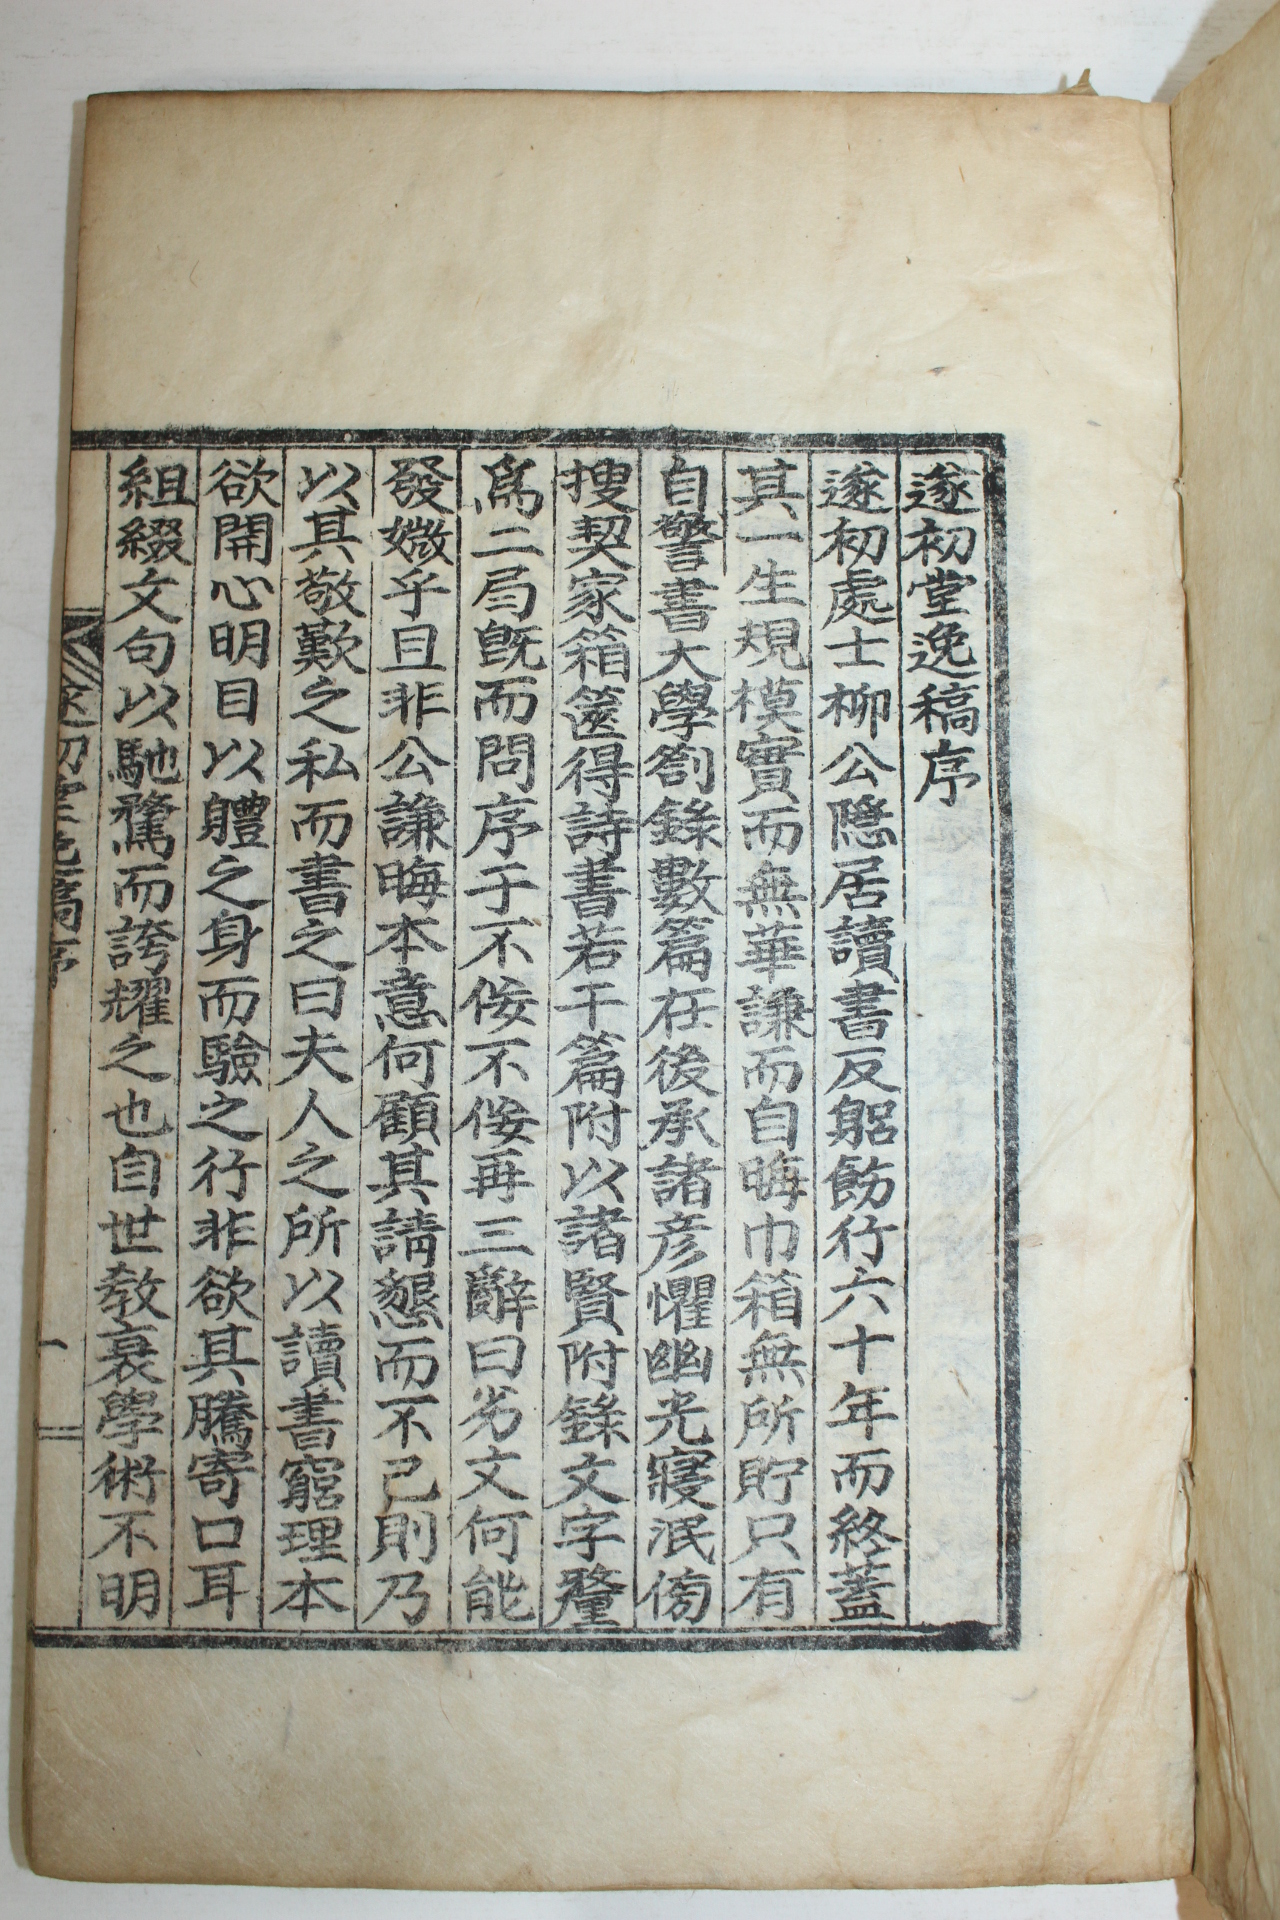 遂初堂逸稿序
遂初處士柳公隱居讀書反躬飭行六十年而終蓋
其一生規模實而無華謙而自晦巾箱無所貯只有
自警書大學劄錄數篇在後承諸彦懼幽光寢泯傍
搜契家箱篋得詩書若干篇附以諸賢附錄文字釐
爲二局旣而問序于不侫不侫再三辭曰劣文何能
發媺乎且非公謙晦本意何顧其請懇而不已則乃
以其敬歎之私而書之曰夫人之所以讀書窮理本
欲開心明目以體之身而驗之行非欲其騰寄口耳
組綴文句以馳騖而誇耀之也自世敎衰學術不明
遂初堂逸稿序
一